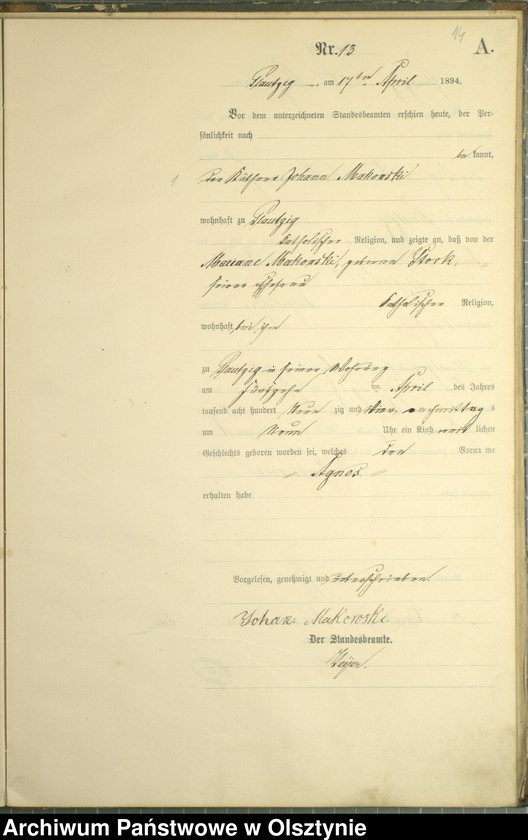 14
Nr. 13
A.
Plautzig am 17ten April 1894.
Vor dem unterzeichneten Standesbeamten erschien heute, der Per-
sönlichkeit nach
bekannt,
der Käthner Johann Makowski
wohnhaft zu Plautzig
katholischer Religion, und zeigte an, daß von der
Mariane Makowski, geborene Stork,
seiner Ehefrau
katholischer Religion,
wohnhaft bei ihm
zu Plautzig in seiner Wohnung
am fünfzehn ten April des Jahres
tausend acht hundert Neun zig und vier, nachmittag s
um Neun Uhr ein Kind weib lichen
Geschlechts geboren worden sei, welches den Vorna me
Agnes
erhalten habe
Vorgelesen, genehmigt und unterschrieben
Johan Makowski
Der Standesbeamte.
Archiwum Państwowe w Olsztynie